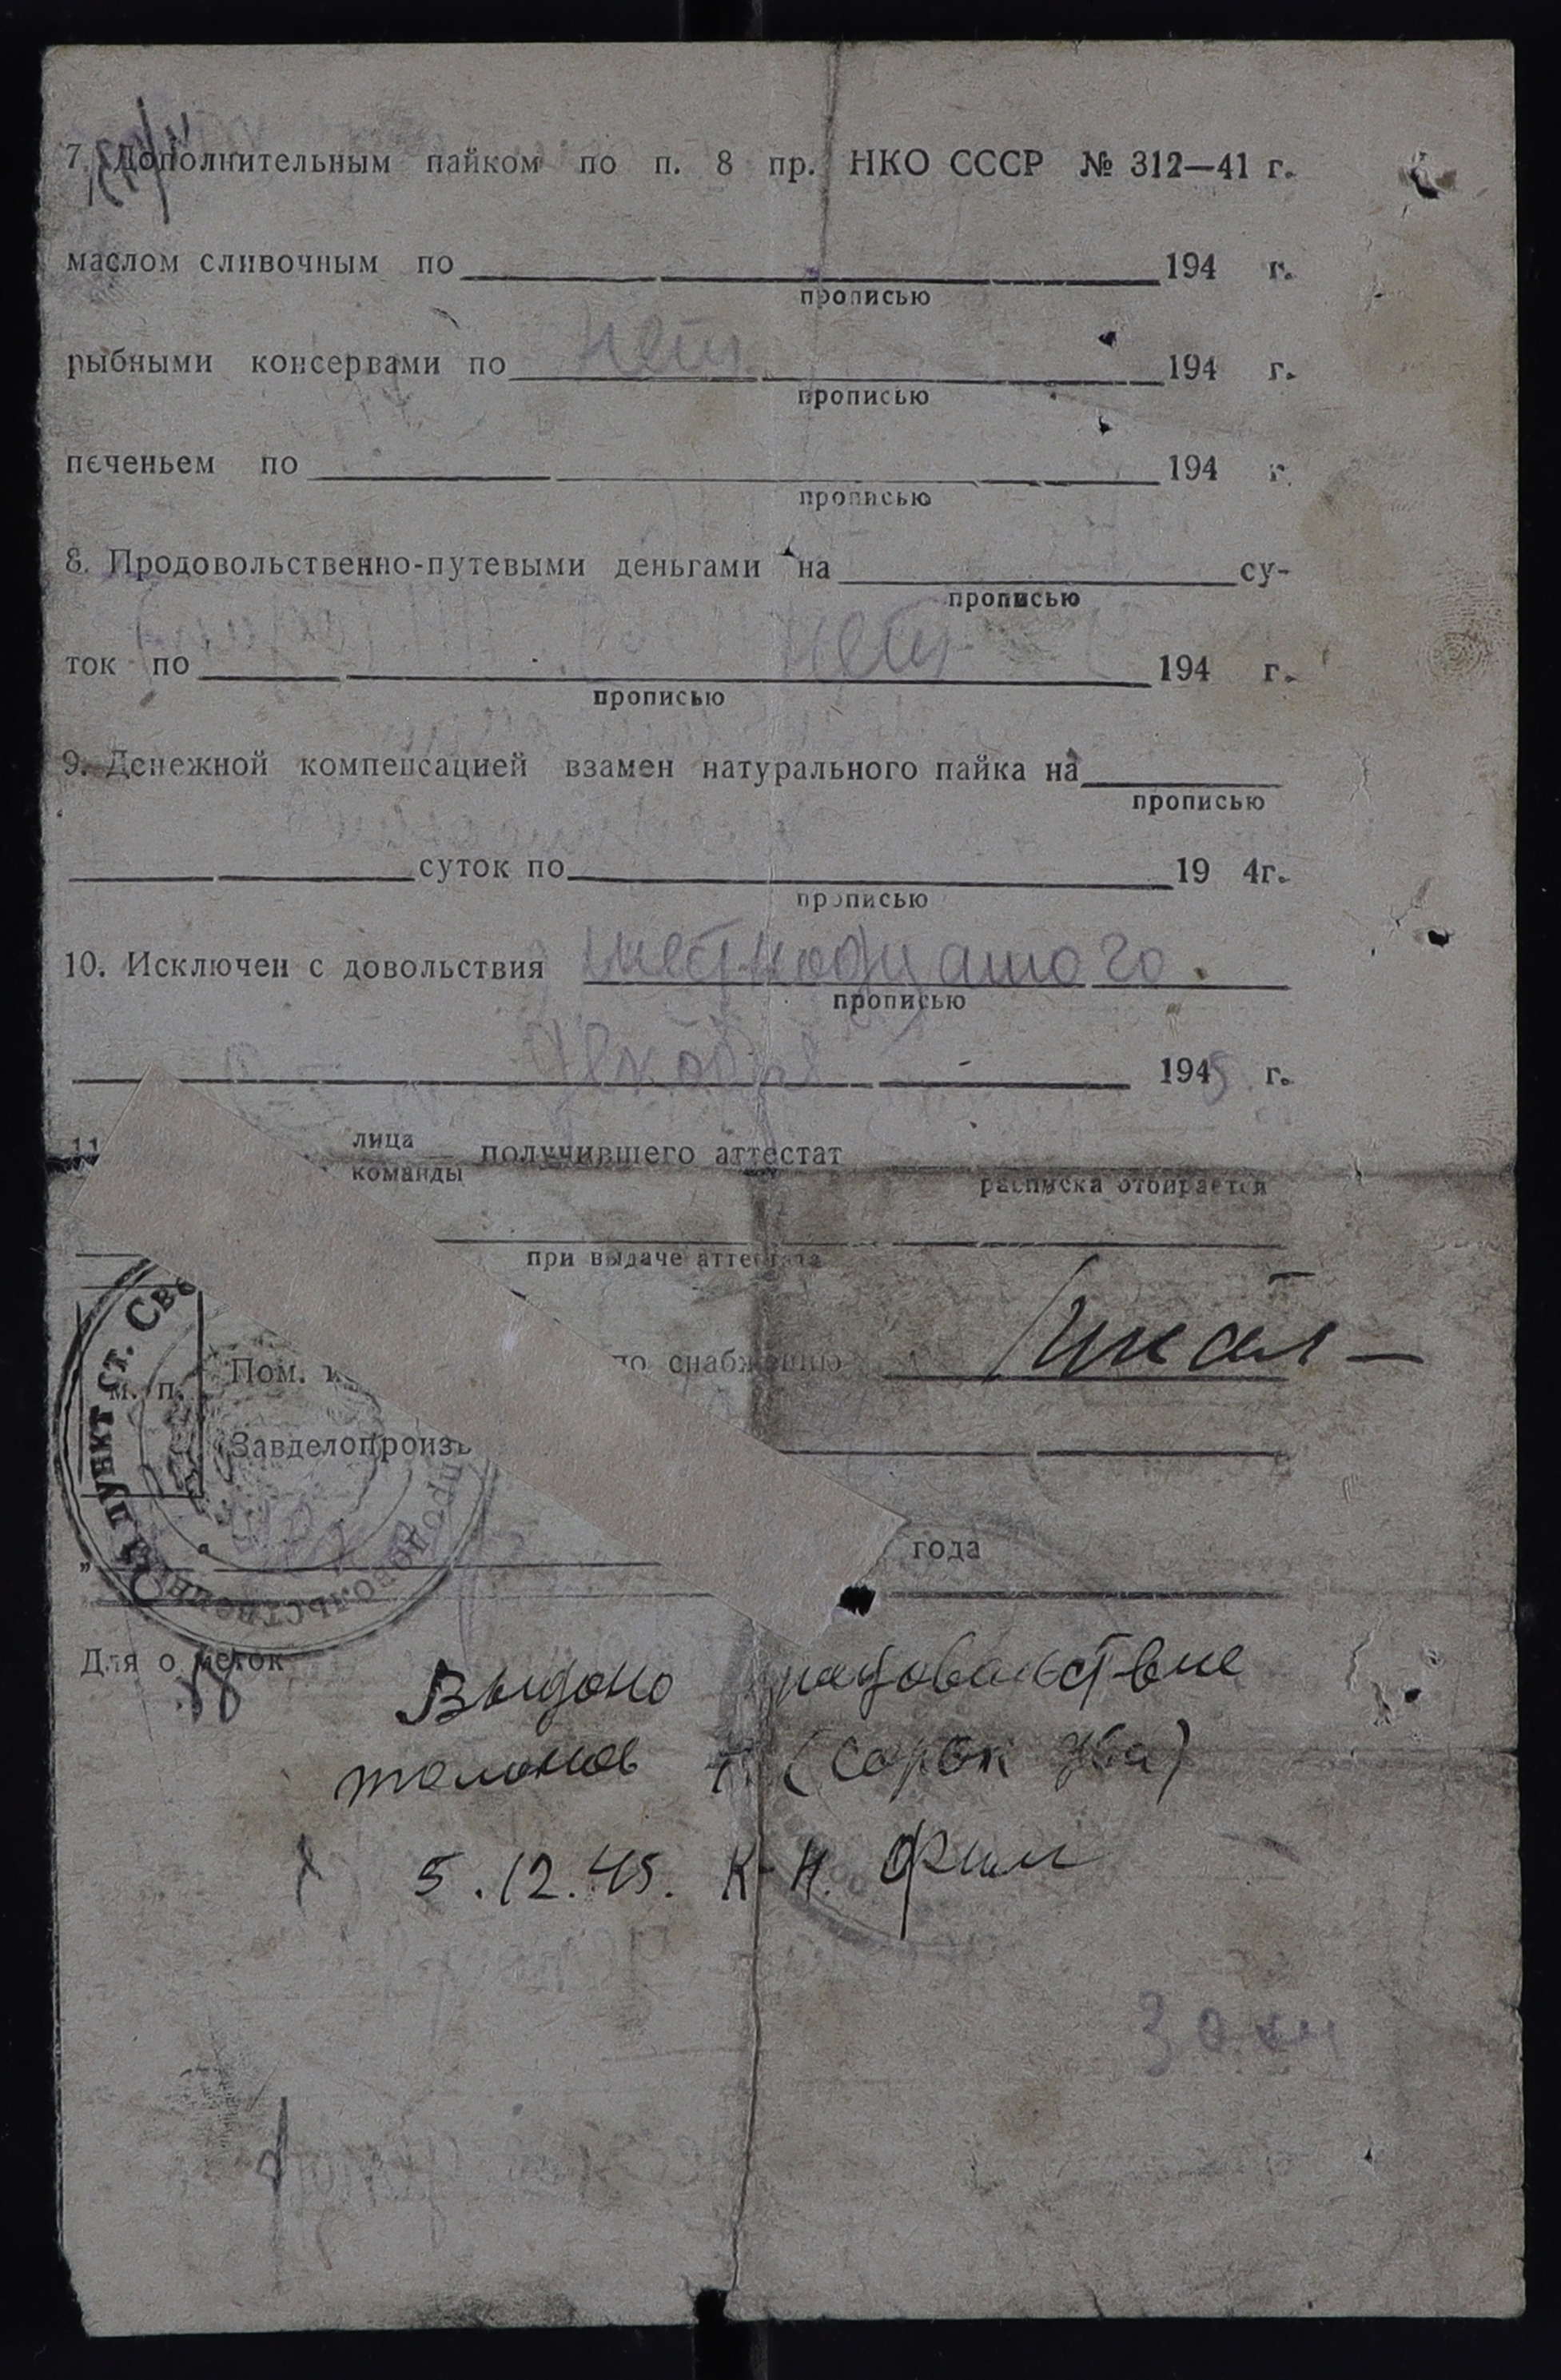 7. Дополнительным пайком по п. 8 пр. НКО СССР № 312—41 г.
маслом сливочным по 194 г.
прописью
рыбными консервами по нет 194 г.
прописью
печеньем по 194 г.
прописью
8. Продовольственно-путевыми деньгами на су-
прописью
ток по нет 194 г.
прописью
9. Денежной компенсацией взамен натурального пайка на
прописью
суток по 19 4г.
прописью
10. Исключен с довольствия шестнадцатого
прописью
декабря 1945 г.
11
лица
команды получившего аттестат
расписка отбирается
при выдаче аттестата
м. п.
Пом. по снабжению
Завделопроизв
года
ПУНКТ СТ. Све
Для отметок
Выдано
талонов (сорок два)
5.12.45. К-Н.